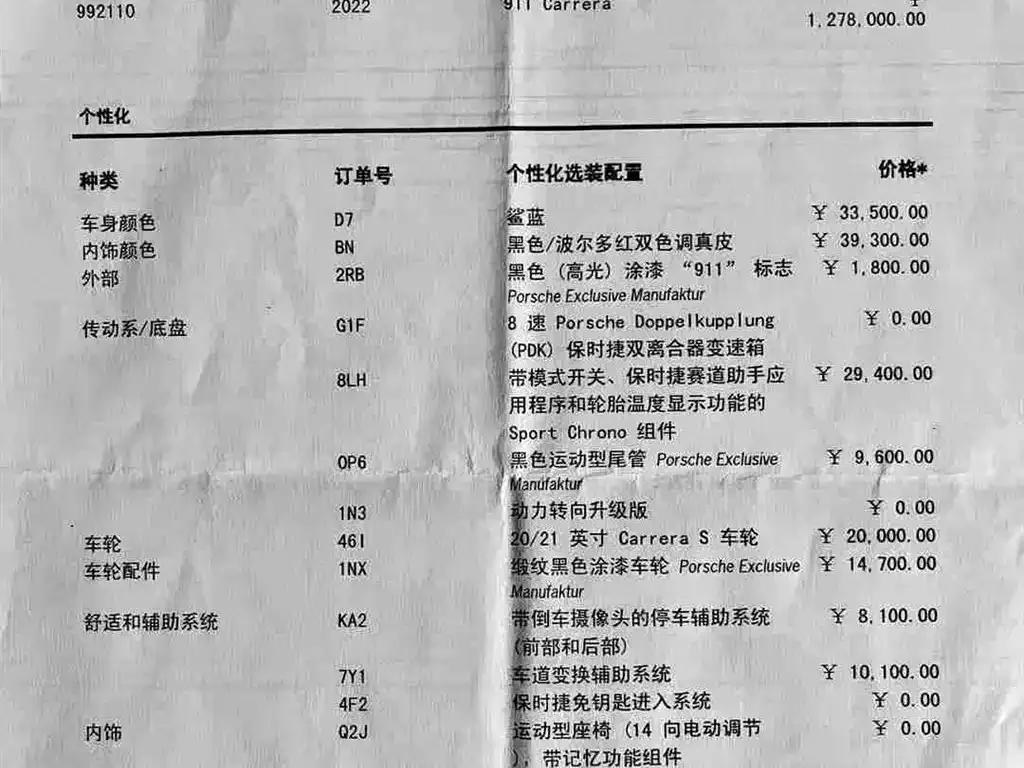 992110 2022 911 Carrera ¥
1,278,000.00
个性化
种类 订单号 个性化选装配置 价格*
车身颜色 D7 鲨蓝 ¥ 33,500.00
内饰颜色 BN 黑色/波尔多红双色调真皮 ¥ 39,300.00
外部 2RB 黑色 (高光) 涂漆 “911” 标志 ¥ 1,800.00
Porsche Exclusive Manufaktur
传动系/底盘 G1F 8 速 Porsche Doppelkupplung ¥ 0.00
(PDK) 保时捷双离合器变速箱
8LH 带模式开关、保时捷赛道助手应 ¥ 29,400.00
用程序和轮胎温度显示功能的
Sport Chrono 组件
0P6 黑色运动型尾管 Porsche Exclusive ¥ 9,600.00
Manufaktur
1N3 动力转向升级版 ¥ 0.00
车轮 46I 20/21 英寸 Carrera S 车轮 ¥ 20,000.00
车轮配件 1NX 缎纹黑色涂漆车轮 Porsche Exclusive ¥ 14,700.00
Manufaktur
舒适和辅助系统 KA2 带倒车摄像头的停车辅助系统 ¥ 8,100.00
(前部和后部)
7Y1 车道变换辅助系统 ¥ 10,100.00
4F2 保时捷免钥匙进入系统 ¥ 0.00
内饰 Q2J 运动型座椅 (14 向电动调节 ¥ 0.00
), 带记忆功能组件